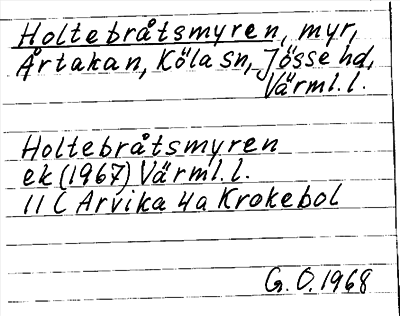 Holtebråtsmyren, myr,
Årtakan, Köla sn, Jösse hd,
Värml.l.
Holtebråtsmyren
ek (1967) Värml.l.
11 C Arvika 4a Krokebol
G.O. 1968